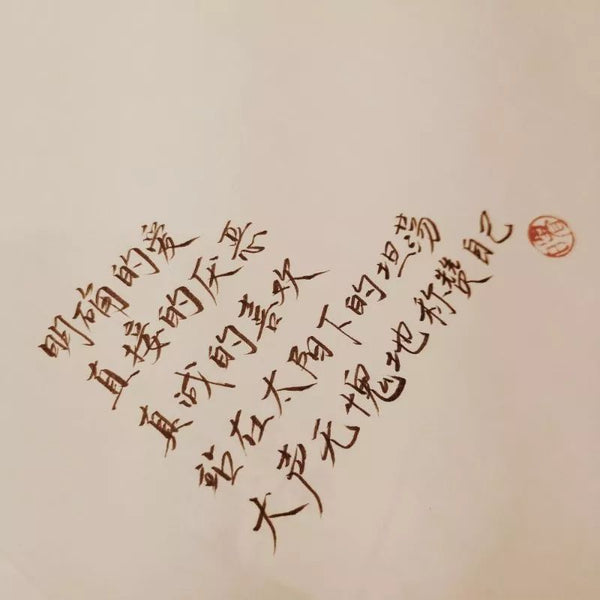 明确的爱
直接的厌恶
真诚的喜欢
站在太阳下的坦荡
大声无愧地称赞自己